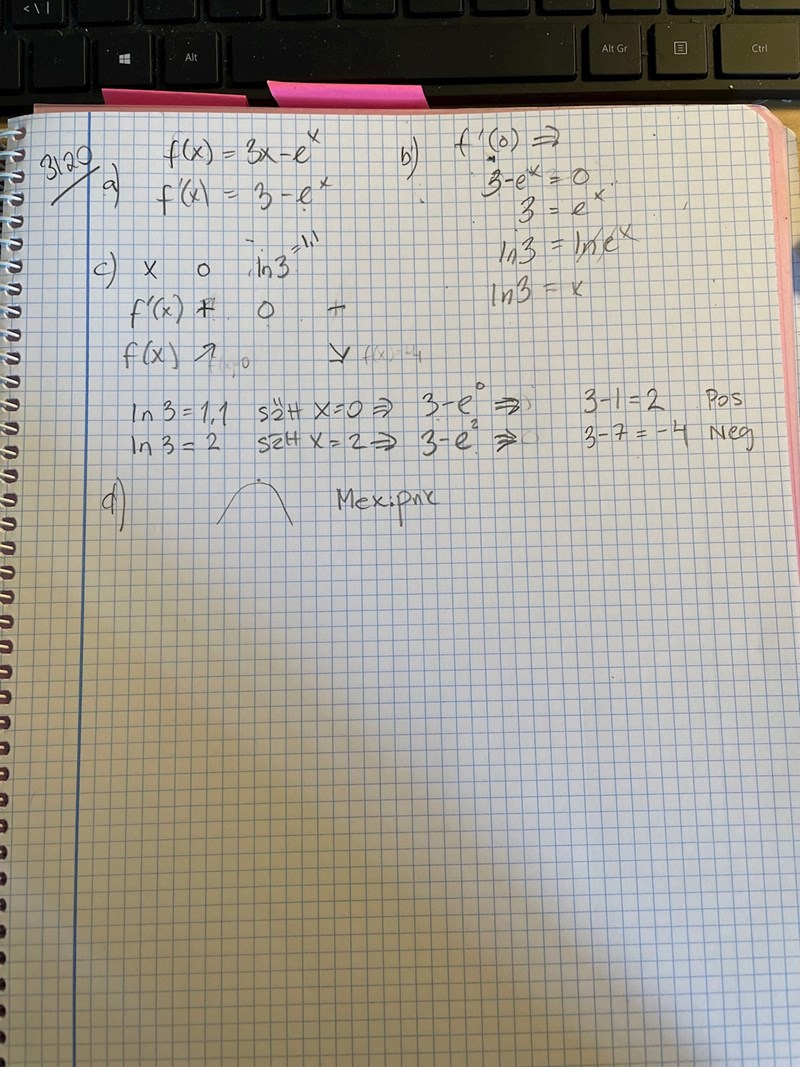 <\|
Fn
Alt
Alt Gr
Ctrl
3120
a) f(x) = 3x - e^x
f'(x) = 3 - e^x
b) f'(0) ⇒
3 - e^x = 0
3 = e^x
ln3 = ln e^x
ln3 = x
c) x 0 ln3 = 1,1
f'(x) + 0 +
f(x) ↗ ↘
ln3 = 1,1 sätt x=0 ⇒ 3 - e^0 ⇒ 3-1 = 2 Pos
ln3 = 2 sätt x=2 ⇒ 3 - e^2 ⇒ 3-7 = -4 Neg
d)